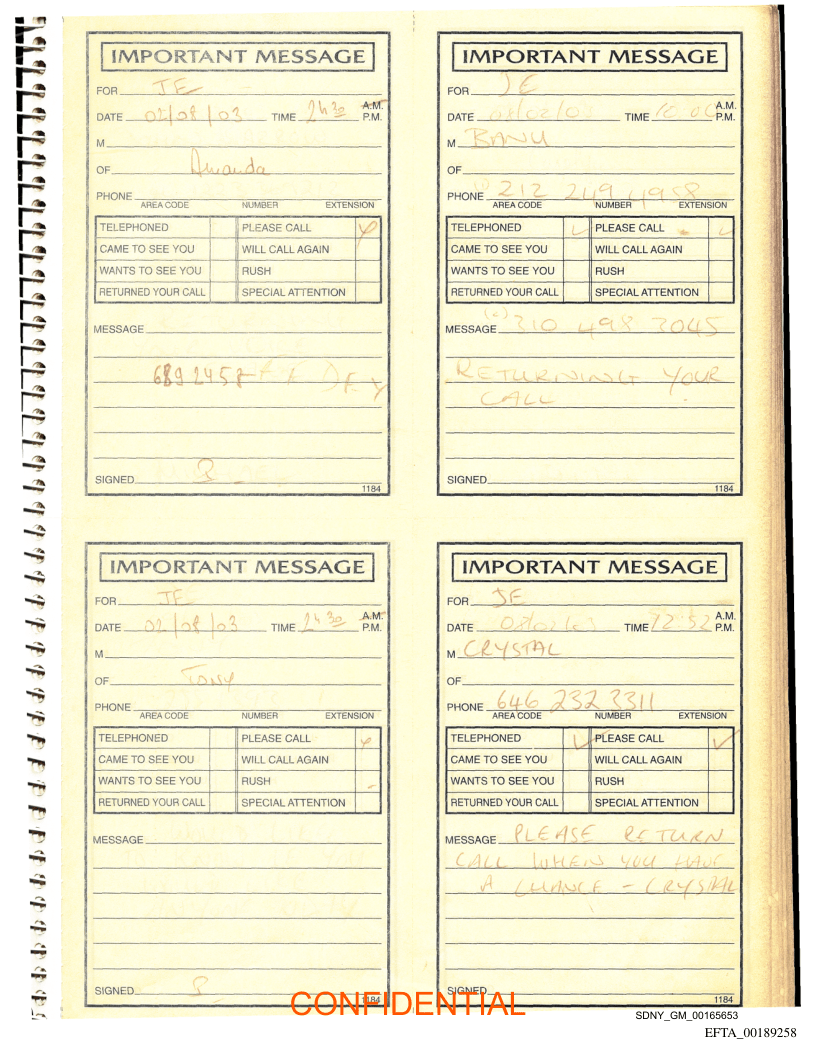 IMPORTANT MESSAGE
FOR JE
DATE 02/08/03 TIME 2h30 A.M. P.M.
M
OF Amanda
PHONE
AREA CODE NUMBER EXTENSION
TELEPHONED PLEASE CALL
CAME TO SEE YOU WILL CALL AGAIN
WANTS TO SEE YOU RUSH
RETURNED YOUR CALL SPECIAL ATTENTION
MESSAGE
SIGNED
1184
IMPORTANT MESSAGE
FOR JE
DATE 08/02/03 TIME 10 A.M. P.M.
M BANU
OF
PHONE 212 249 4958
AREA CODE NUMBER EXTENSION
TELEPHONED ✓ PLEASE CALL ✓
CAME TO SEE YOU WILL CALL AGAIN
WANTS TO SEE YOU RUSH
RETURNED YOUR CALL SPECIAL ATTENTION
MESSAGE (c) 310 498 3045
RETURNING YOUR
CALL
SIGNED
1184
IMPORTANT MESSAGE
FOR JE
DATE 02/08/03 TIME 2h30 A.M. P.M.
M
OF Tony
PHONE
AREA CODE NUMBER EXTENSION
TELEPHONED PLEASE CALL
CAME TO SEE YOU WILL CALL AGAIN
WANTS TO SEE YOU RUSH
RETURNED YOUR CALL SPECIAL ATTENTION
MESSAGE
SIGNED
1184
IMPORTANT MESSAGE
FOR JE
DATE 08/02/03 TIME 12:52 A.M. P.M.
M CRYSTAL
OF
PHONE 646 232 3311
AREA CODE NUMBER EXTENSION
TELEPHONED ✓ PLEASE CALL ✓
CAME TO SEE YOU WILL CALL AGAIN
WANTS TO SEE YOU RUSH
RETURNED YOUR CALL SPECIAL ATTENTION
MESSAGE PLEASE RETURN
CALL WHEN YOU HAVE
A CHANCE - CRYSTAL
SIGNED
1184
CONFIDENTIAL
SDNY_GM_00165653
EFTA_00189258